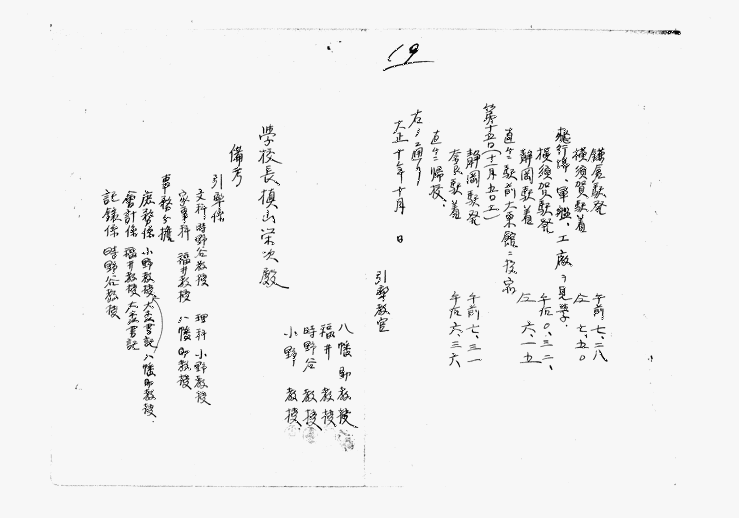 19
鎌倉駅発 午前七、二八
横須賀駅着 仝 七、五〇
飛行場、軍艦、工廠ヲ見学.
横須賀駅発 午后〇、三二、
静岡駅着 仝 六、一五
直ニ駅前大東館ニ投宿
第十五日(十一月五日土)
静岡駅発 午前七、三一
奈良駅着 午后六、三六
直ニ帰校、
右之通リ
大正十年十月 日
引率教官
八幡助教授
福井教授
時野谷教授
小野教授
學校長槙山栄次殿
備考
引率係
文科 時野谷教授 理科 小野教授
家事科 福井教授 八幡助教授
事務分擔
庶務係 小野教授 大孟書記 八幡助教授.
會計係 福井教授 大孟書記
記錄係 時野谷教授